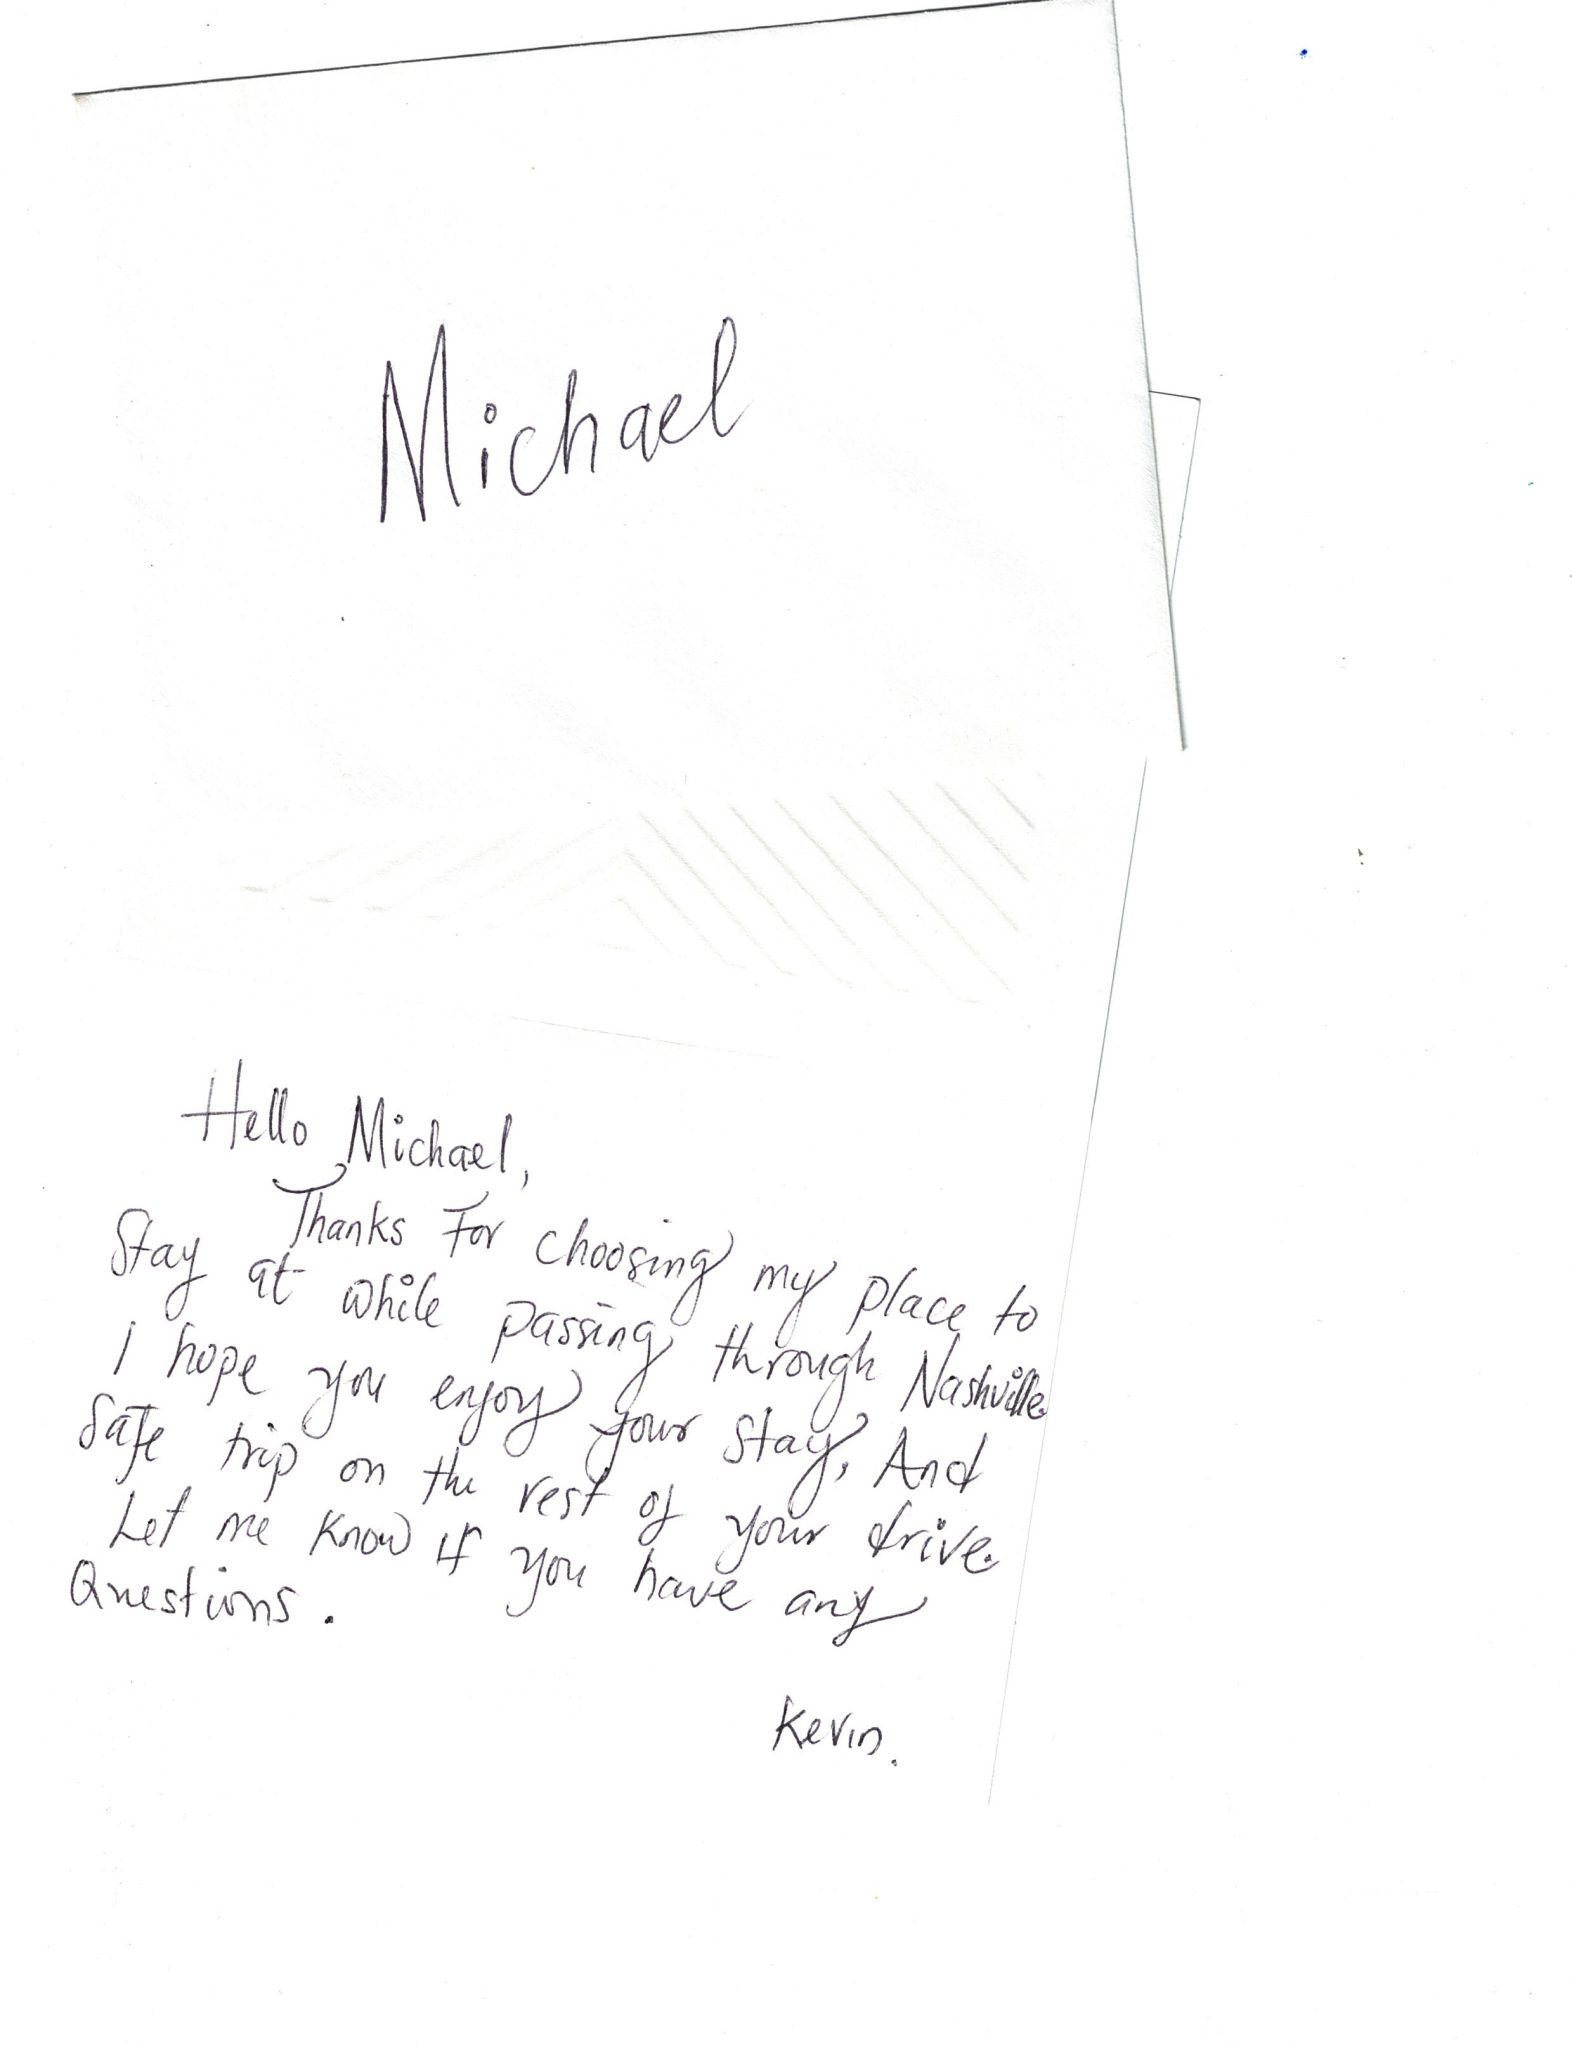 Michael
Hello Michael,
Thanks For choosing my place to
Stay at while passing through Nashville.
I hope you enjoy your stay, And
Safe trip on the rest of your drive.
Let me know if you have any
Questions.
Kevin.